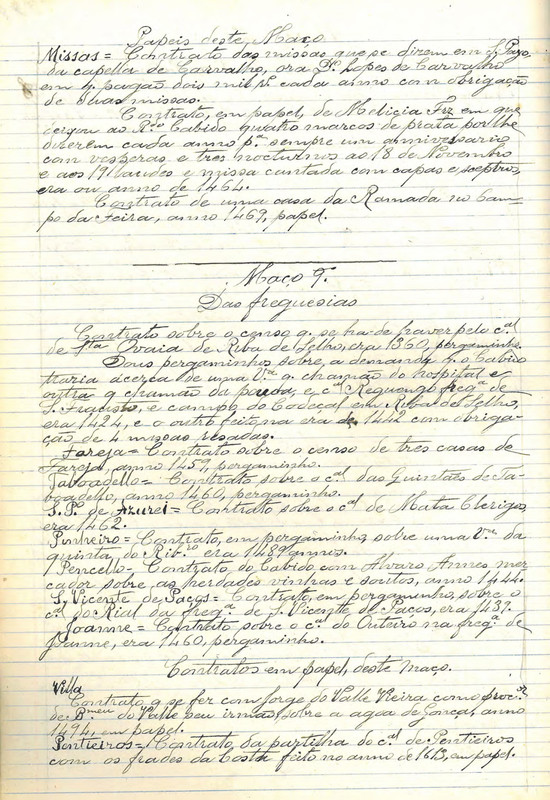 Papeis deste Maço
Missas = Contrato das missas que se dizem em S. Payo
da capella de Carvalho, ora Fr. Lopes de Carvalho
em q. pagão dois mil rs. cada anno com obrigação
de duas missas.
Contrato, em papel, de Melicia Frz em que
deixou ao R.do Cabido quatro marcos de prata por lhe
dizerem cada anno p.a sempre um anniversario
com vesperas e tres nocturnos aos 18 de Novembro
e aos 19 laudes e missa cantada com capas e sceptros,
era ou anno de 1464.
Contrato de uma casa da Ramada no Cam-
po da Feira, anno 1469, papel.
Maço 9.
Das freguesias
Contrato sobre o censo q. se ha de haver pelo c.al
de S.ta Ovaia de Riba de Selho, era 1360, pergaminho.
Dous pergaminhos sobre a demanda q. o Cabido
trazia ácerca de uma V.a a chamão do hospital e
outra q chamão da povoa, e c.al Reguengo freg.a de
S. , e campo do Codeçal em Riba de Selho,
era 1424, e o outro feito na era de 1442 com obriga-
ção de 4 missas resadas.
Fareja = Contrato sobre o censo de tres casas de
Fareja, anno 1459, pergaminho.
Taboadello = Contrato sobre o c.al das Quintães de Ta-
boadello, anno 1460, pergaminho.
S. P. de Azurei = Contrato sobre o c.al de Mata Clerigos,
era 1462.
Pinheiro = Contrato, em pergaminho, sobre uma V.a da
quinta do Rib.ro era 1489 annos.
Pencello - Contrato do Cabido com Alvaro Annes mer
cador sobre as herdades vinhas e soutos, anno 1444.
S. Vicente de Paços = Contrato, em pergaminho, sobre o
c.al do Rial da freg.a de S. Vicente de Paços, era 1437.
Joanne = Contrato sobre o c.al do Outuro na freg.a de
Joanne, era 1460, pergaminho.
Contratos em papel, deste maço.
Villa
Contrato q se fez com Jorge do Valle Vieira como proc.or
de B.meu do Valle seu irmão, sobre a agoa de Gonça, anno
1494, em papel.
Pentieiros = Contrato da partilha do c.al de Pentieiros
com os frades da Costa feito no anno de 1613, em papel.